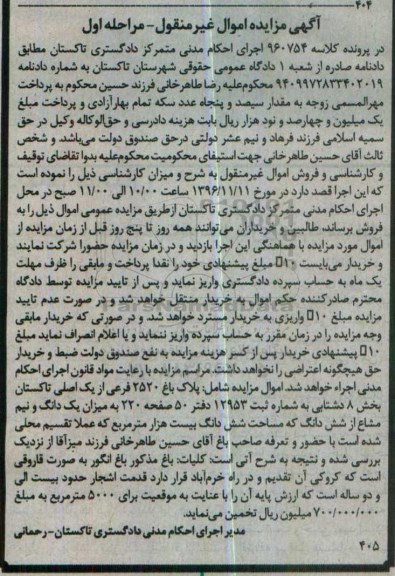 ۴۰۴
آگهی مزایده اموال غیر منقول - مراحله اول
در پرونده کلاسه ۹۶۰۷۵۴ اجرای احکام مدنی متمرکز دادگستری تاکستان مطابق
دادنامه صادره از شعبه ۱ دادگاه عمومی حقوقی شهرستان تاکستان به شماره دادنامه
۹۴۰۹۹۷۲۸۳۳۴۰۲۰۱۹ محکوم‌علیه رضا طاهرخانی فرزند حسین محکوم به پرداخت
مهرالمسمی زوجه به مقدار سیصد و پنجاه عدد سکه تمام بهار‌آزادی و پرداخت مبلغ
یک میلیون و چهارصد و نود هزار ریال بابت هزینه دادرسی و حق‌الوکاله وکیل در حق
سمیه اسلامی فرزند فرهاد و نیم عشر دولتی درحق صندوق دولت می‌باشد. و شخص
ثالث آقای حسین طاهرخانی جهت استیفای محکومیت محکوم‌علیه بدوا تقاضای توقیف
و کارشناسی و فروش اموال غیرمنقول به شرح و میزان کارشناسی ذیل را نموده است
که این اجرا قصد دارد در مورخ ۱۳۹۶/۱۱/۱۱ ساعت ۱۰/۰۰ الی ۱۱/۰۰ صبح در محل
اجرای احکام مدنی متمرکز دادگستری تاکستان ازطریق مزایده عمومی اموال ذیل را به
فروش برساند، طالبین و خریداران می‌توانند همه روز تا پنج روز قبل از زمان مزایده از
اموال مورد مزایده با هماهنگی این اجرا بازدید و در زمان مزایده حضورا شرکت نمایند
و خریدار می‌بایست ۱۰٪ مبلغ پیشنهادی خود را نقدا پرداخت و مابقی را ظرف مهلت
یک ماه به حساب سپرده دادگستری واریز نماید و پس از تایید مزایده توسط دادگاه
محترم صادرکننده حکم اموال به خریدار منتقل خواهد شد و در صورت عدم تایید
مزایده مبلغ ۱۰٪ واریزی به خریدار مسترد خواهد شد و در صورتی که خریدار مابقی
وجه مزایده را در زمان مقرر به حساب سپرده واریز ننماید و یا اعلام انصراف نماید مبلغ
۱۰٪ پیشنهادی خریدار پس از کسر هزینه مزایده به نفع صندوق دولت ضبط و خریدار
حق هیچگونه اعتراضی را نخواهد داشت. مراسم مزایده با رعایت مواد قانون اجرای احکام
مدنی اجراء خواهد شد. اموال مزایده شامل: پلاک باغ ۲۵۲۰ فرعی از یک اصلی تاکستان
بخش ۸ دشتابی به شماره ثبت ۱۲۹۵۳ دفتر ۵۰ صفحه ۲۲۰ به میزان یک دانگ و نیم
مشاع از شش دانگ که مساحت شش دانگ بیست هزار مترمربع که عملا تقسیم محلی
شده است با حضور و تعرفه صاحب باغ آقای حسین طاهرخانی فرزند میرآقا از نزدیک
بررسی شده و نتیجه به شرح آتی است: کلیات: باغ مذکور باغ انگور به صورت قاروقی
است که کروکی آن تقدیم و در راه خرم‌آباد قرار دارد قدمت اشجار حدود بیست الی
و دو ساله است که ارزش پایه آن را با عنایت به موقعیت برای ۵۰۰۰ مترمربع به مبلغ
۷۰۰/۰۰۰/۰۰۰ میلیون ریال تخمین می‌نماید.
مدیر اجرای احکام مدنی دادگستری تاکستان - رحمانی
۴۰۵